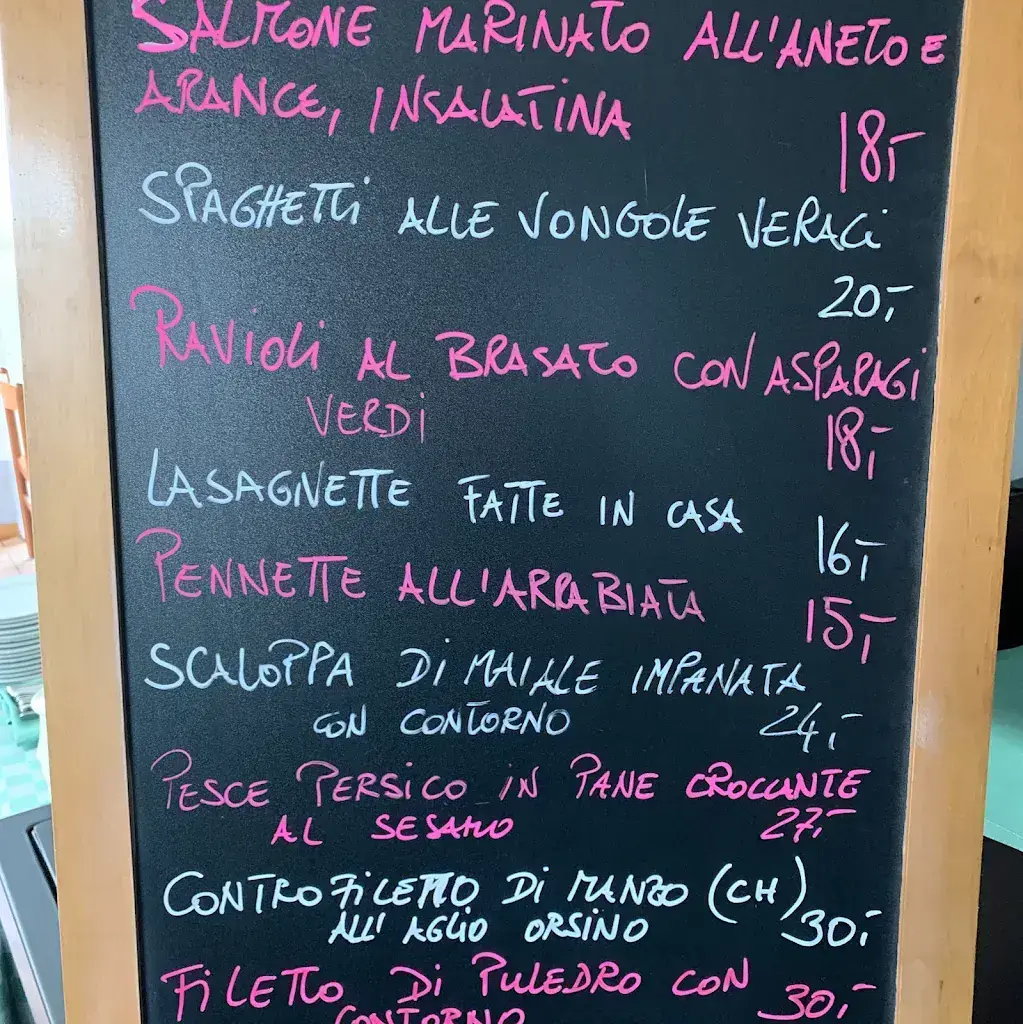 SALMONE MARINATO ALL'ANETO E
ARANCE, INSALATINA
18,-
SPAGHETTI ALLE VONGOLE VERACI
20,-
RAVIOLI AL BRASATO CON ASPARAGI
VERDI 18,-
LASAGNETTE FATTE IN CASA
16,-
PENNETTE ALL'ARRABIATA 15,-
SCALOPPA DI MAIALE IMPANATA
CON CONTORNO 24,-
PESCE PERSICO IN PANE CROCCANTE
AL SESAMO 27,-
CONTROFILETTO DI MANZO (CH)
ALL' AGLIO ORSINO 30,-
FILETTO DI PULEDRO CON 30,-
CONTORNO